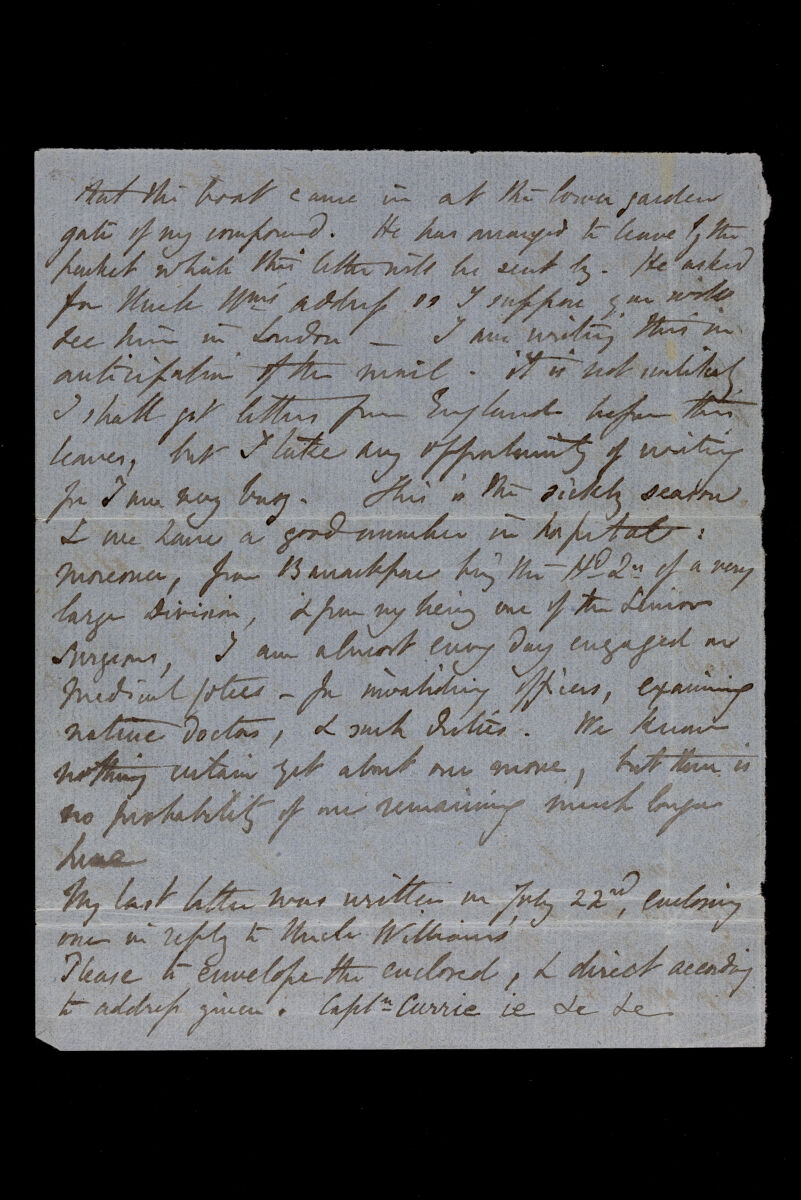 that the boat came in at the lower garden
gate of my compound. He has arranged to leave by the
packet which this letter will be sent by. He asked
for Uncle Wm's address so I suppose you will
see him in London — I am writing this in
anticipation of the mail. it is not unlikely
I shall get letters from England before this
leaves, but I take any opportunity of writing
for I am very busy. This is the sickly season
& we have a good number in hospital:
moreover, from Barrackpore being the Hd Qrs of a very
large Division, & from my being one of the Senior
Surgeons, I am almost every day engaged on
Medical Cottees - for invaliding officers, examining
native Doctors, & such duties. We know
nothing certain yet about our move, but there is
no probability of our remaining much longer
here
My last letter was written on July 22nd, enclosing
one in reply to Uncle William's
Please to envelope the enclosed, & direct according
to address given. Captn Currie &c &c &c